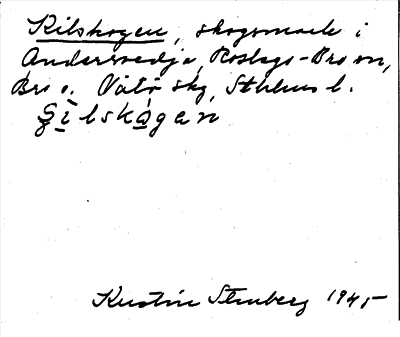 Kilskogen, skogsmark i
Andersvedja, Roslags-Bro sn,
Bro o. Vätö skg, Sthlms l.
Kerstin Stenberg 1945